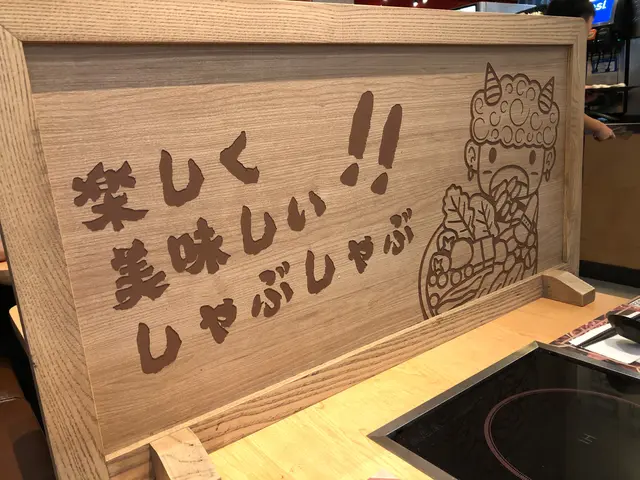 楽しく!!
美味しい
しゃぶしゃぶ